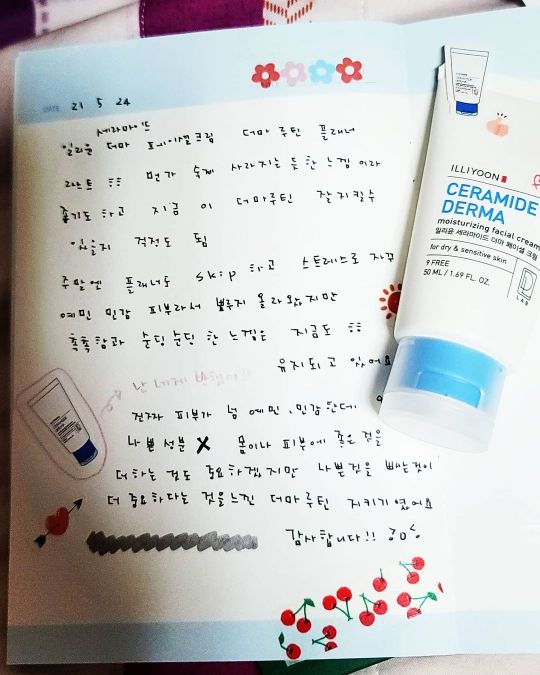 DATE 21 5 24
세라마이드
일리윤 더마 페이셜크림 더마 루틴 플래너
라스트 !!! 뭔가 숙제 사라지는 듯한 느낌 이라
좋기도 하고 지금 이 더마루틴 잘 지킬수
있을지 걱정도 됨
주말엔 플래너도 skip 하고 스트레스로 자꾸
예민 민감 피부라서 뾰루지 올라왔지만
촉촉함과 순딩순딩 한 느낌은 지금도 !!!
유지되고 있어요
난 네게 반했어!!
진짜 피부가 넘 예민, 민감한데
나쁜성분 X 몸이나 피부에 좋은 것을
더하는 것도 중요하겠지만 나쁜것을 빼는것이
더 중요하다는 것을느낀 더마루틴 지키기였어요
감사합니다!!
ILLIYOON
CERAMIDE
DERMA
moisturizing facial cream
일리윤 세라마이드 더마 페이셜 크림
for dry & sensitive skin
9 FREE
50 ML / 1.69 FL. OZ.
D LAB